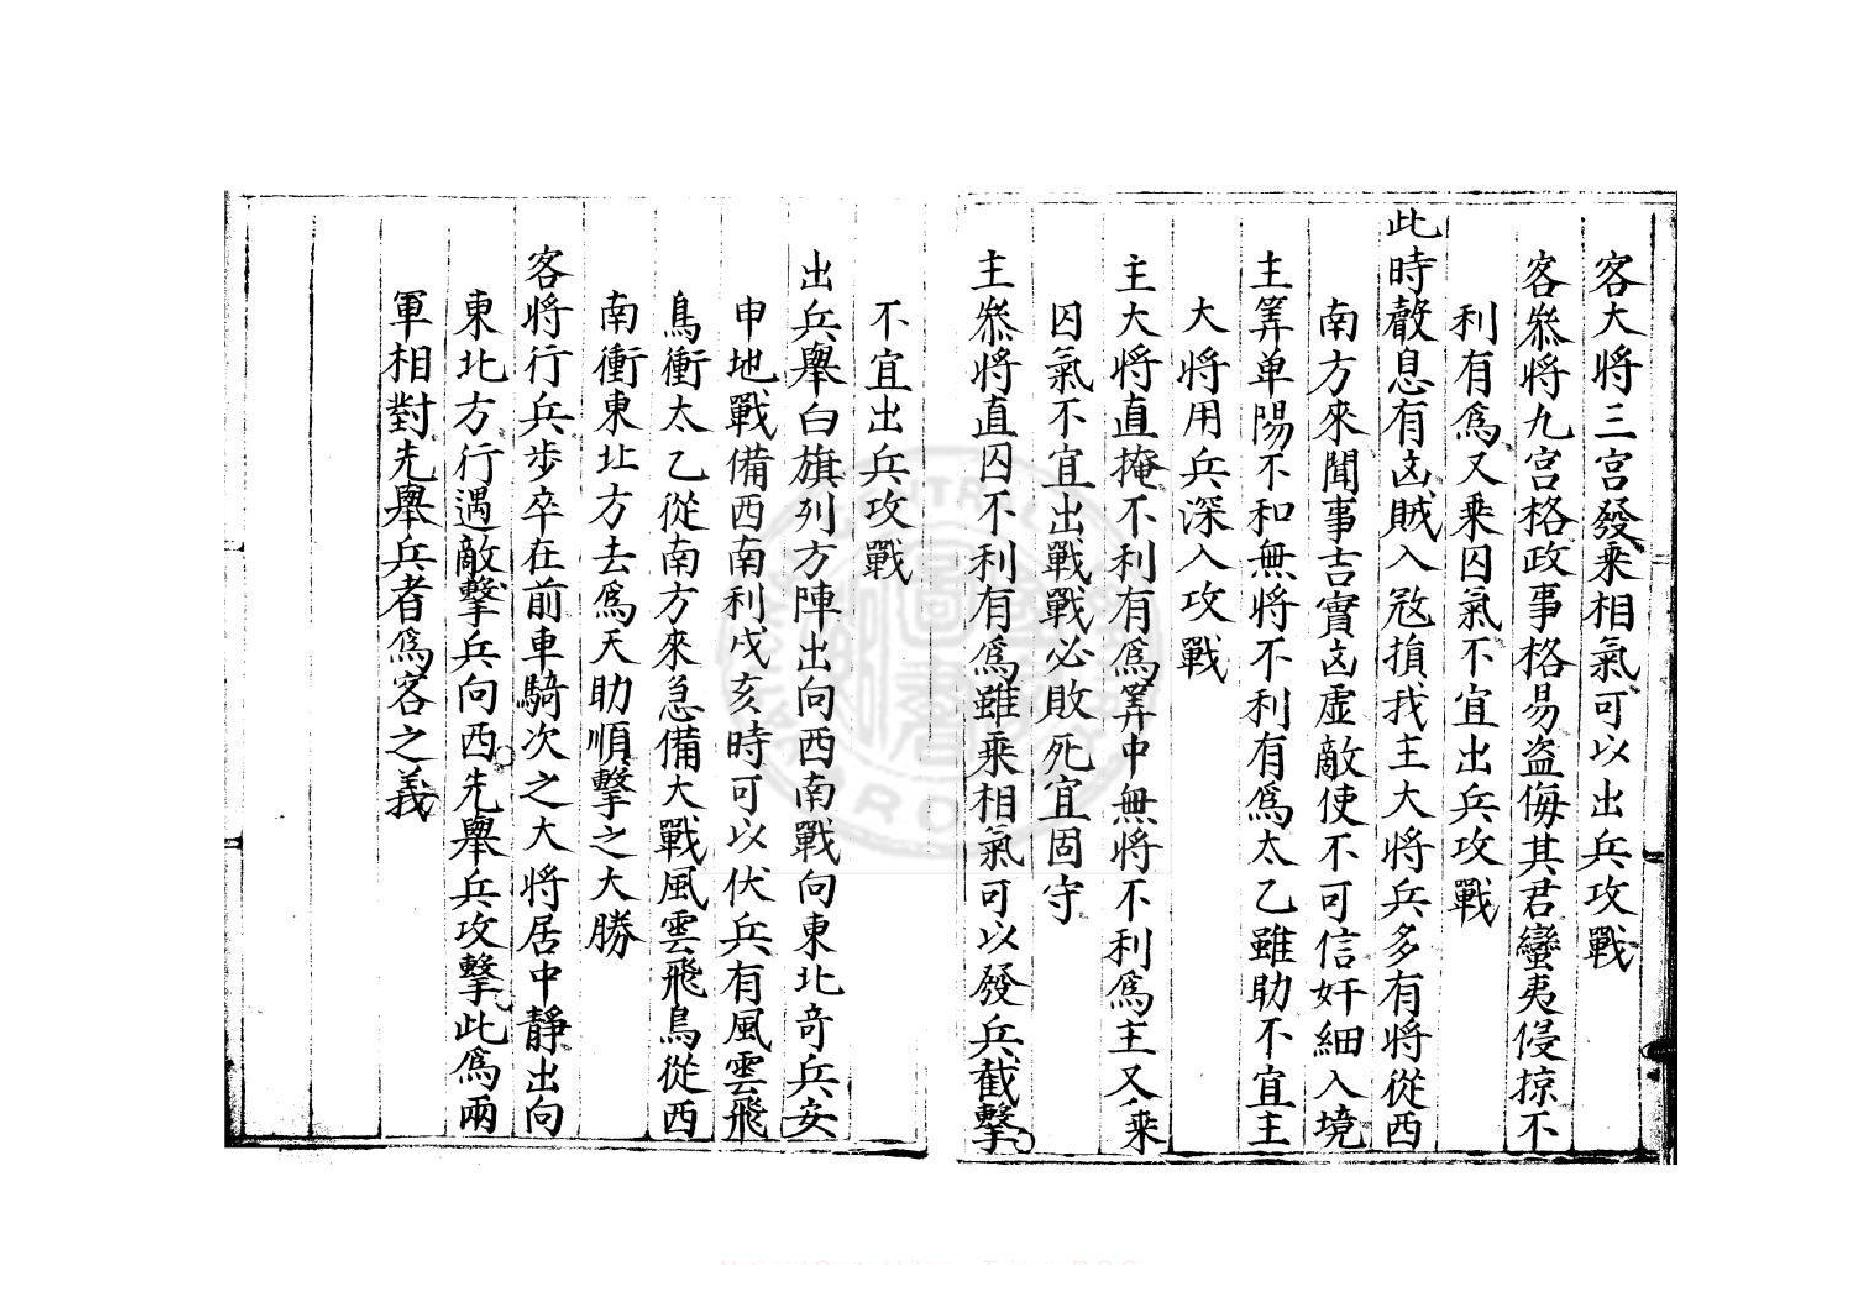 客大将三宫發乗相氣可以出兵攻戰
客叅将九宫格政事格易盗侮其君蠻夷侵掠不
利有爲又乗囚氣不宜出兵攻戰
此時聲息有凶賊入寇損我主大將兵多有將從西
南方來聞事吉實凶虛敵使不可信奸細入境
主筭单陽不和無将不利有爲太乙雖助不宜主
大將用兵深入攻戰
主大將直掩不利有爲筭中無將不利爲主又乗
囚氣不宜出戰戰必敗死宜固守
主叅將直囚不利有爲雖乗相氣可以發兵截擊
不宜出兵攻戰
出兵舉白旗列方陣出向西南戰向東北竒兵安
申地戰備西南利戌亥時可以伏兵有風雲飛
鳥衝太乙從南方來急備大戰風雲飛鳥從西
南衝東北方去爲天助順擊之大勝
客將行兵步卒在前車騎次之大將居中靜出向
東北方行遇敵擊兵向西先舉兵攻擊此爲兩
軍相對先舉兵者爲客之義